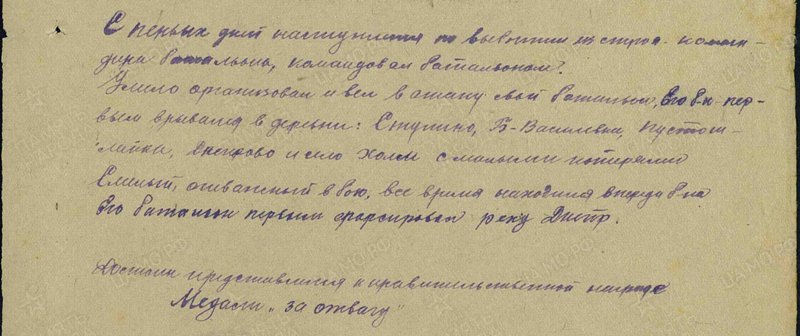 С первых дней наступления по выбытии из строя коман-
дира батальона, командовал батальоном.
Умело организовал и вел в атаку свой батальон, Его б-н пер-
вым врывался в деревни: Ступино, Б-Василевки, Пустош-
лайки, и село Холм с малыми потерями
Смелый, отважный в бою, все время находился впереди б-на
Его батальон первым форсировал реку Днепр.
Достоин представления к правительственной награде
Медали "за отвагу"